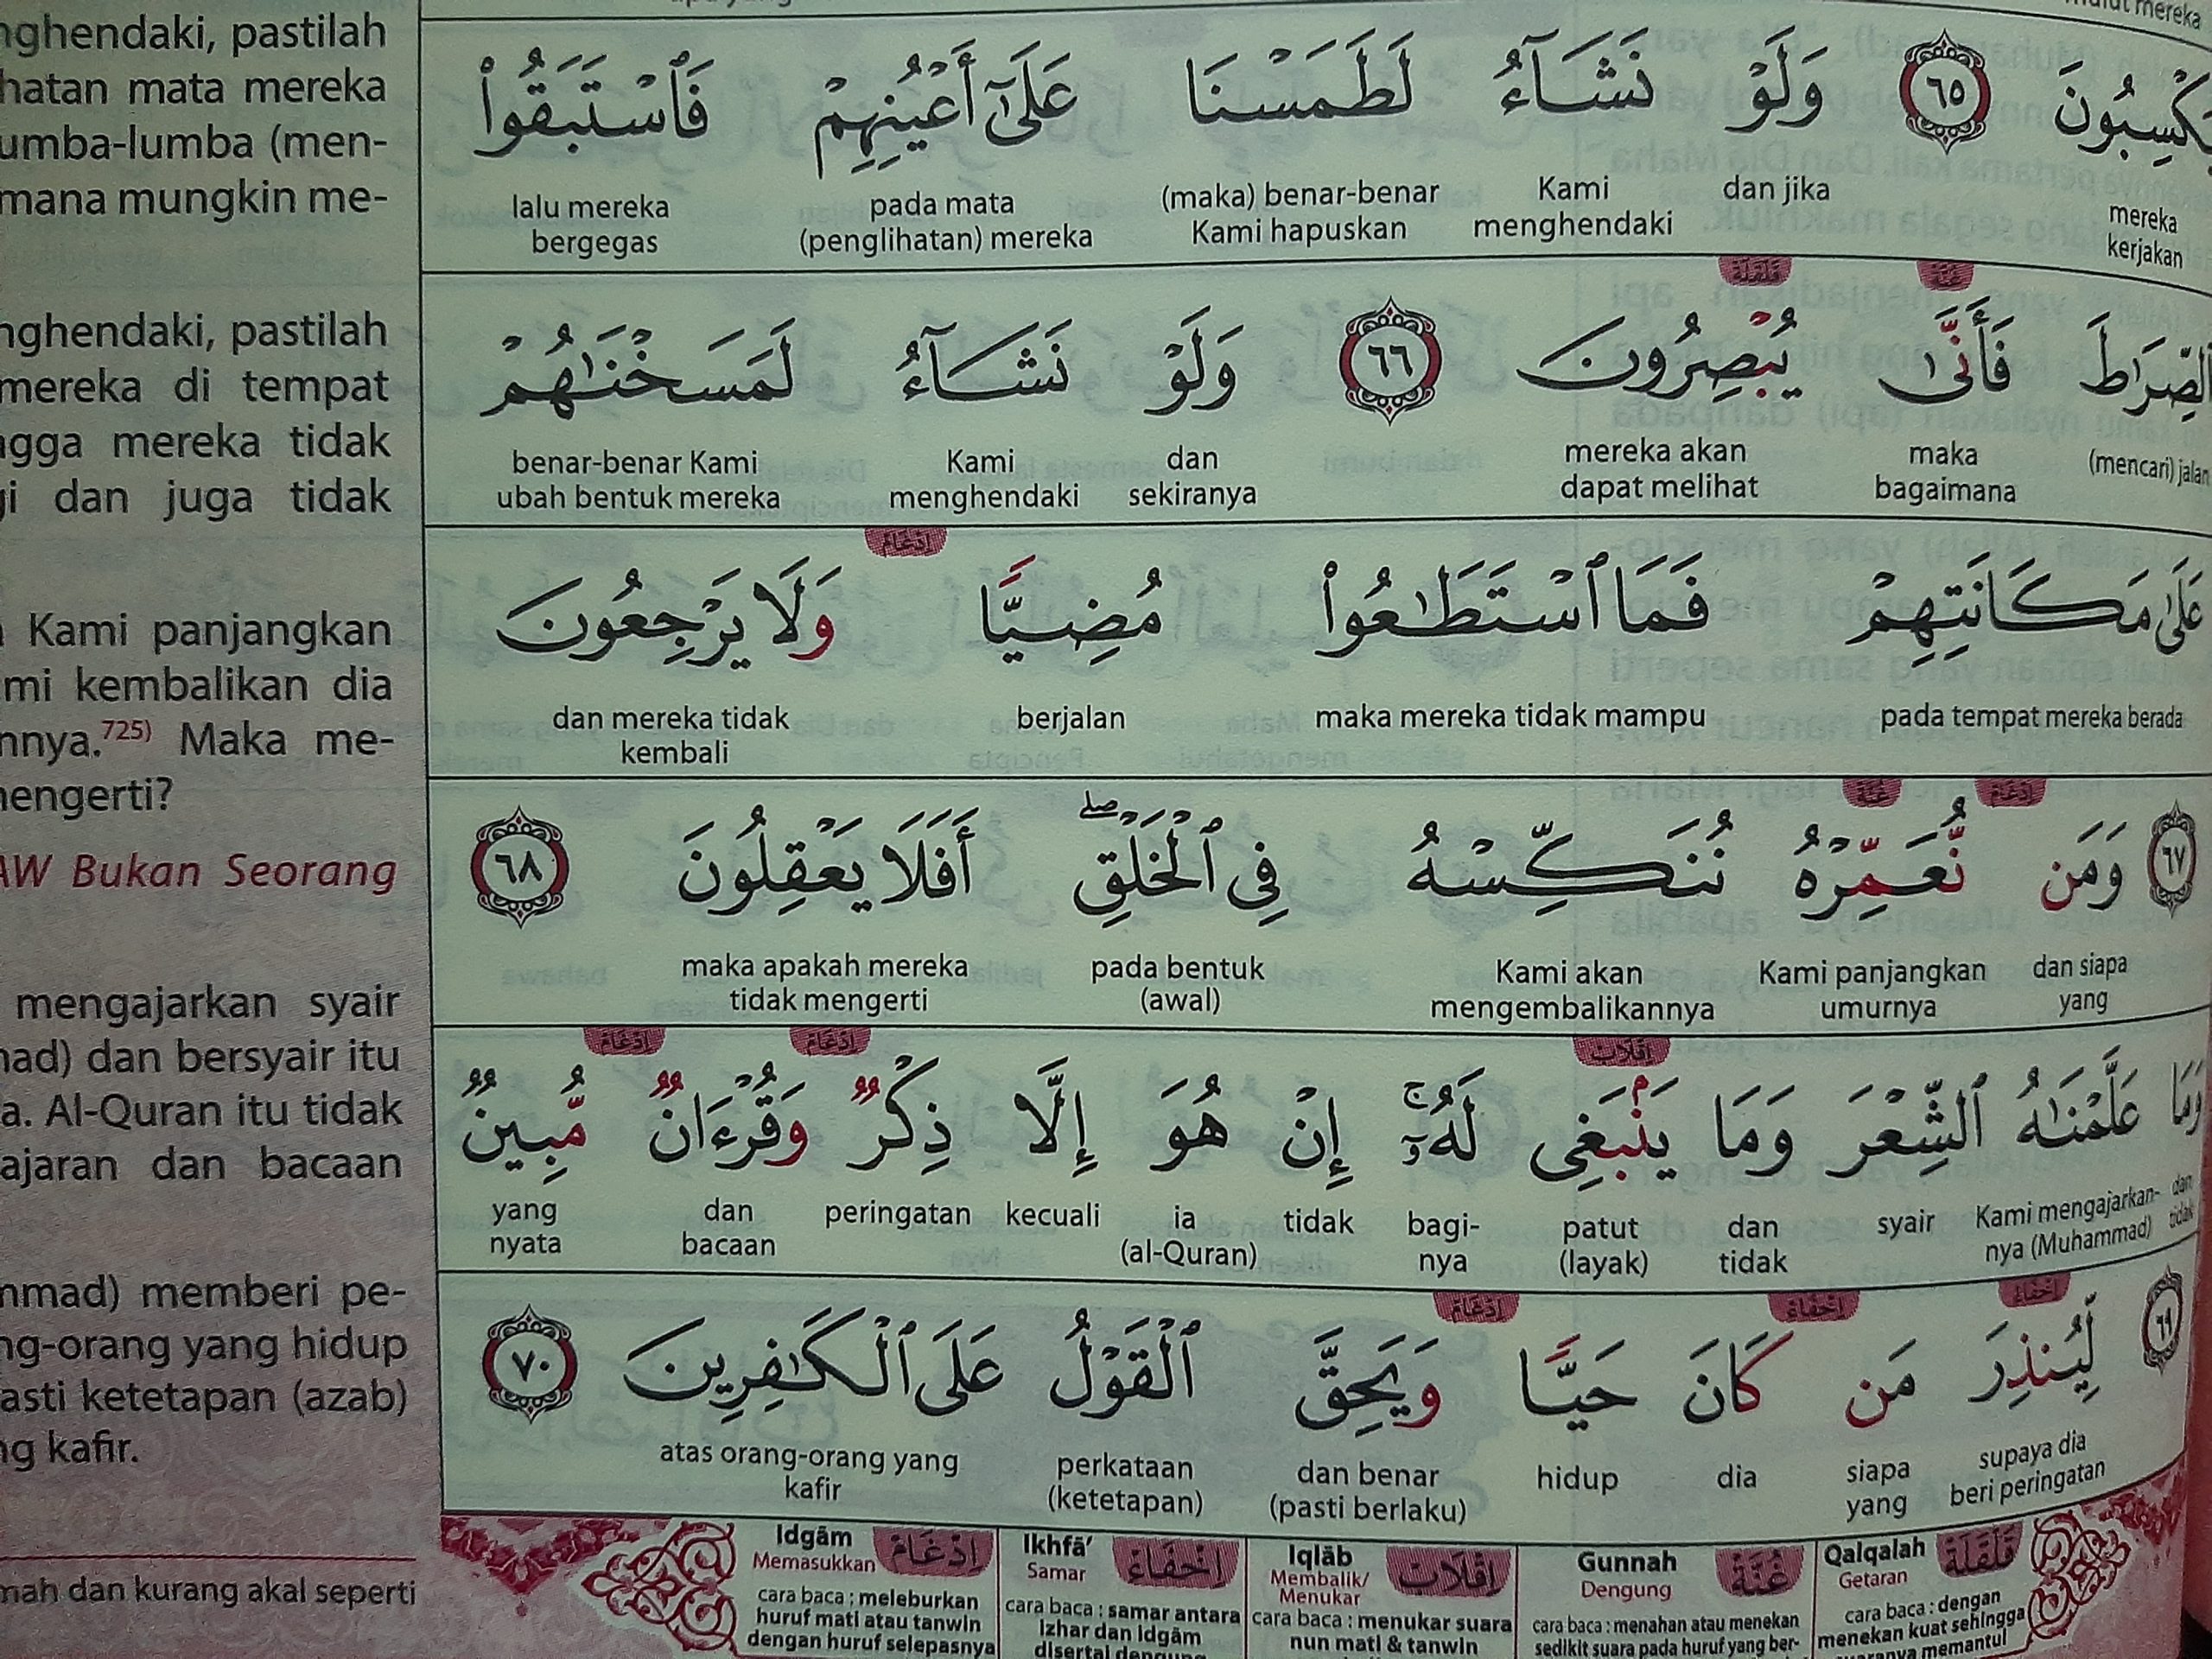 nghendaki, pastilah
hatan mata mereka
umba-lumba (men-
mana mungkin me-
nghendaki, pastilah
mereka di tempat
ngga mereka tidak
gi dan juga tidak
Kami panjangkan
mi kembalikan dia
nnya.725) Maka me-
nengerti?
AW Bukan Seorang
mengajarkan syair
nad) dan bersyair itu
a. Al-Quran itu tidak
ajaran dan bacaan
mmad) memberi pe-
ng-orang yang hidup
asti ketetapan (azab)
ng kafir.
mah dan kurang akal seperti
يَكْسِبُونَ ٦٥ وَلَوْ نَشَآءُ لَطَمَسْنَا عَلَىٰٓ أَعْيُنِهِمْ فَٱسْتَبَقُوا۟
mereka kerjakan
dan jika
Kami menghendaki
(maka) benar-benar Kami hapuskan
pada mata (penglihatan) mereka
lalu mereka bergegas
قلقلة غنة
ٱلصِّرَٰطَ فَأَنَّىٰ يُبْصِرُونَ ٦٦ وَلَوْ نَشَآءُ لَمَسَخْنَٰهُمْ
(mencari) jalan
maka bagaimana
mereka akan dapat melihat
dan sekiranya
Kami menghendaki
benar-benar Kami ubah bentuk mereka
إدغام
عَلَىٰ مَكَانَتِهِمْ فَمَا ٱسْتَطَٰعُوا۟ مُضِيًّا وَلَا يَرْجِعُونَ
pada tempat mereka berada
maka mereka tidak mampu
berjalan
dan mereka tidak kembali
إدغام غنة
٦٧ وَمَن نُّعَمِّرْهُ نُنَكِّسْهُ فِى ٱلْخَلْقِ ۖ أَفَلَا يَعْقِلُونَ ٦٨
dan siapa yang
Kami panjangkan umurnya
Kami akan mengembalikannya
pada bentuk (awal)
maka apakah mereka tidak mengerti
إقلاب إدغام إدغام
وَمَا عَلَّمْنَٰهُ ٱلشِّعْرَ وَمَا يَنۢبَغِى لَهُۥٓ ۚ إِنْ هُوَ إِلَّا ذِكْرٌ وَقُرْءَانٌ مُّبِينٌ
dan tidak
Kami mengajarkan-nya (Muhammad)
syair
dan tidak
patut (layak)
bagi-nya
tidak
ia (al-Quran)
kecuali
peringatan
dan bacaan
yang nyata
إخفاء إخفاء إدغام
٦٩ لِّيُنذِرَ مَن كَانَ حَيًّا وَيَحِقَّ ٱلْقَوْلُ عَلَى ٱلْكَٰفِرِينَ ٧٠
supaya dia beri peringatan
siapa yang
dia
hidup
dan benar (pasti berlaku)
perkataan (ketetapan)
atas orang-orang yang kafir
Idgām إِدْغَامْ
Memasukkan
cara baca : meleburkan
huruf mati atau tanwin
dengan huruf selepasnya
Ikhfā’ إِخْفَاءْ
Samar
cara baca : samar antara
Izhar dan Idgām
disertai dengung
Iqlāb إِقْلَابْ
Membalik/
Menukar
cara baca : menukar suara
nun mati & tanwin
Gunnah غُنَّةْ
Dengung
cara baca : menahan atau menekan
sedikit suara pada huruf yang ber-
Qalqalah قَلْقَلَةْ
Getaran
cara baca : dengan
menekan kuat sehingga
suaranya memantul